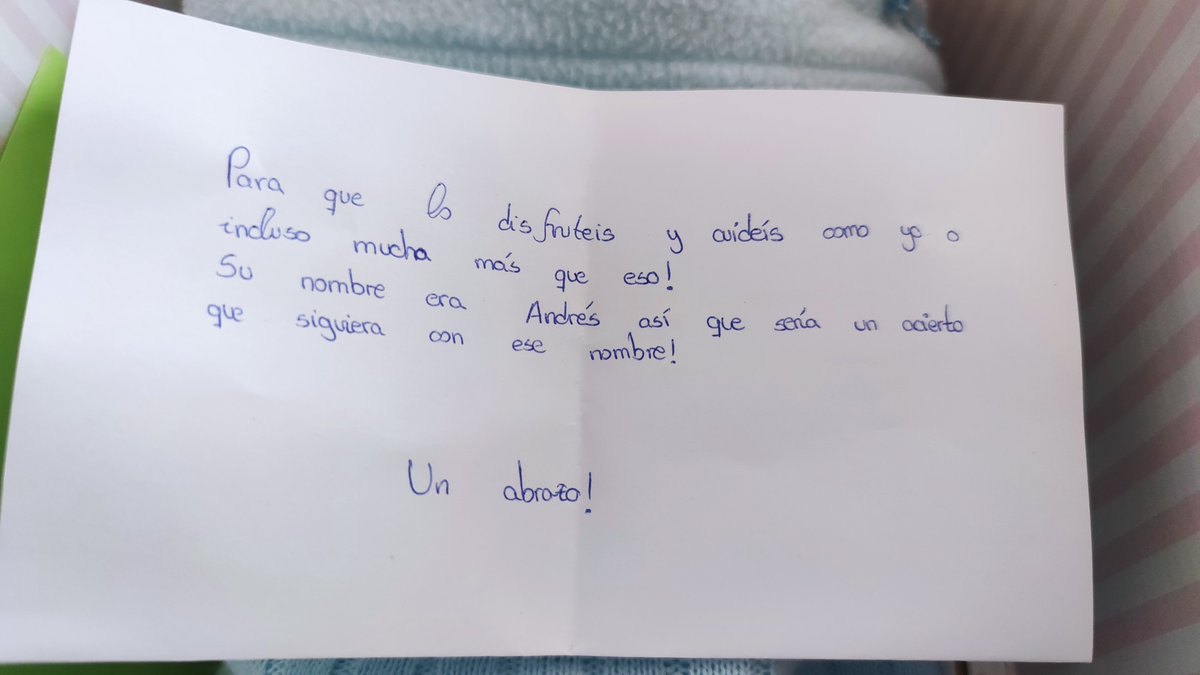 Para que lo disfruteis y cuideís como yo o
incluso mucha más que eso!
Su nombre era Andrés así que sería un acierto
que siguiera con ese nombre!
Un abrazo!